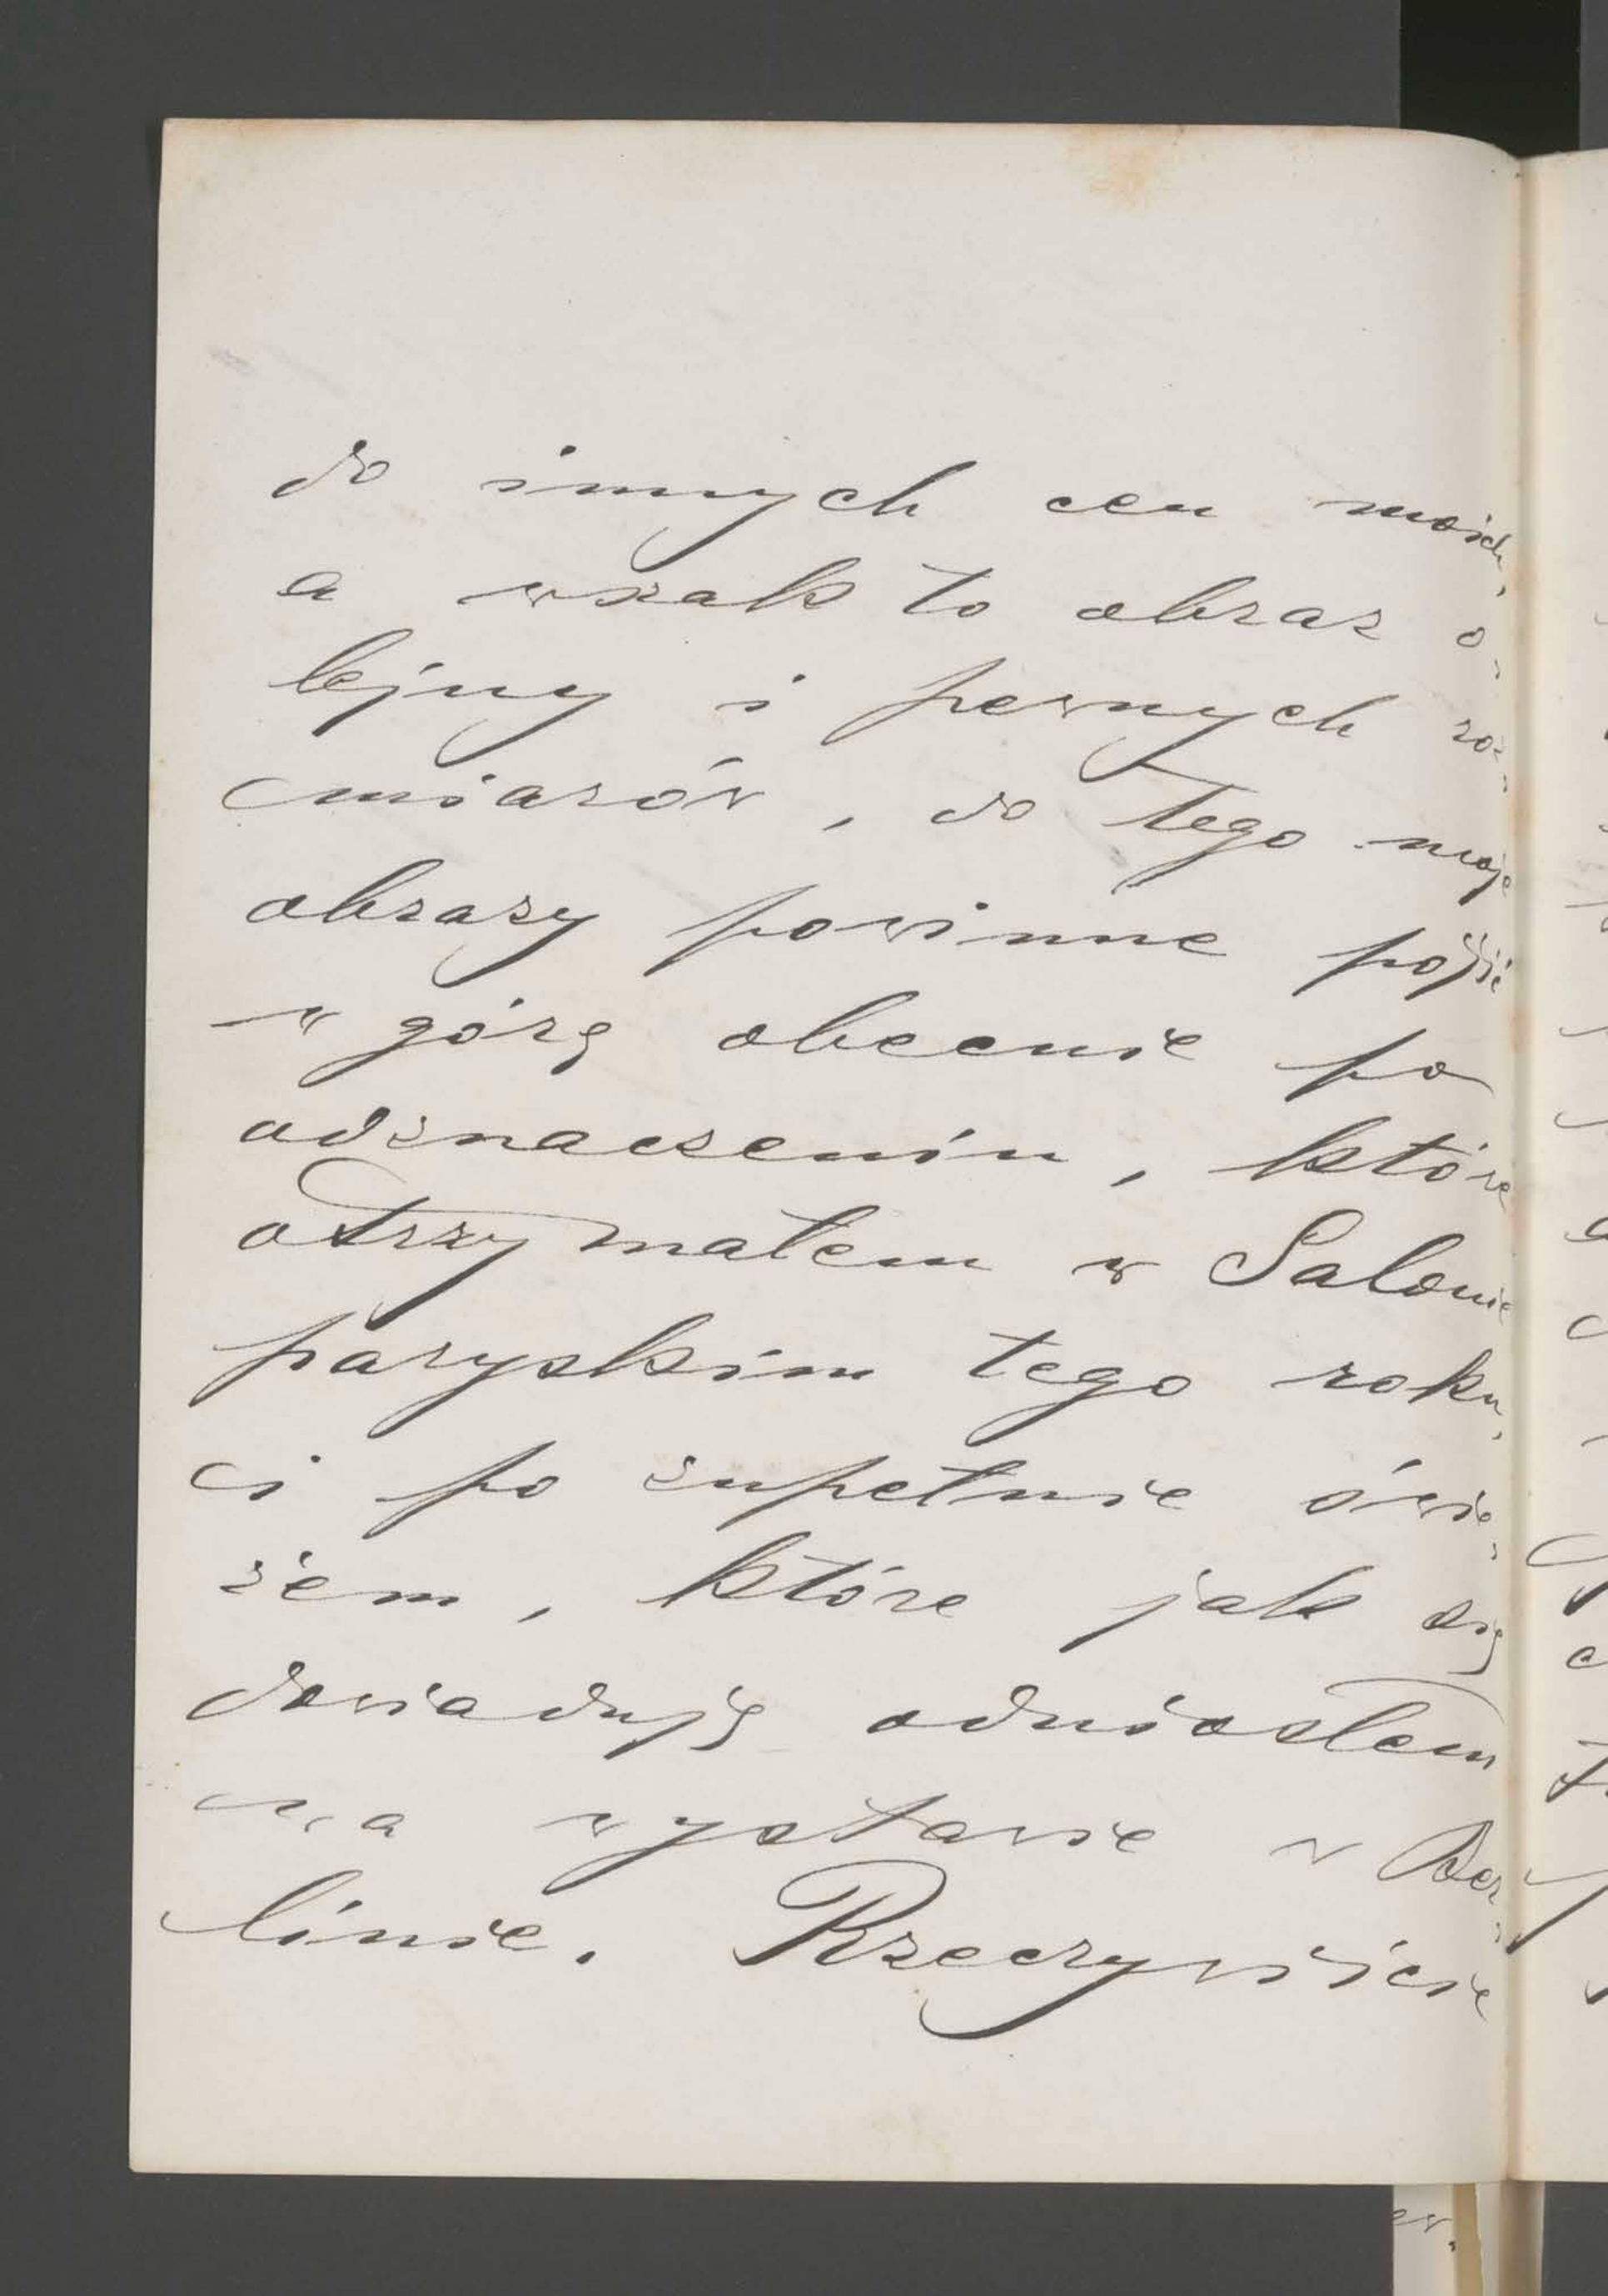 do innych cen moich,
a wszak to obraz o-
lejny i pewnych roz-
miarów, do tego moje
obrazy powinne pójść
w górę obecnie po
odznaczeniu, które
otrzymałem w Salonie
paryskim tego roku,
i po zupełnie świe-
żem, które jak się
dowiaduję odniosłem
na wystawie w Ber-
linie. Rzeczywiście